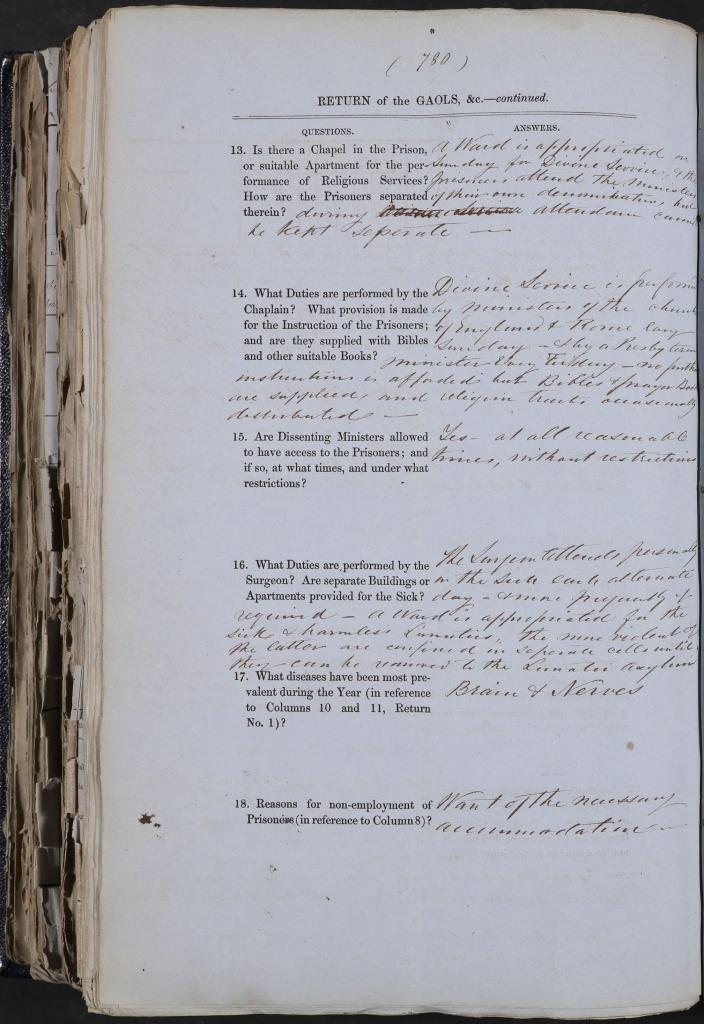 ( 780 )
RETURN of the GAOLS, &c.—continued.
QUESTIONS. ANSWERS.
13. Is there a Chapel in the Prison, A Ward is appropriated on
or suitable Apartment for the per- Sunday for Divine Service, & the
formance of Religious Services? prisoners attend the ministers
How are the Prisoners separated of their own denomination, but
therein? during attendance cannot
be kept seperate —
14. What Duties are performed by the Divine Service is performed
Chaplain? What provision is made by ministers of the church
for the Instruction of the Prisoners; of England & Rome every
and are they supplied with Bibles Sunday — & by a Presbyterian
and other suitable Books? minister every Tuesday — no further
instruction is afforded but Bibles & prayer Books
are supplied and religious tracts occasionally
distributed —
15. Are Dissenting Ministers allowed Yes — at all reasonable
to have access to the Prisoners; and times, without restrictions
if so, at what times, and under what
restrictions?
16. What Duties are performed by the The Surgeon attends personally
Surgeon? Are separate Buildings or on the Sick each alternate
Apartments provided for the Sick? day — & more frequently if
required — A Ward is appropriated for the
sick & harmless Lunatics, the more violent of
the latter are confined in seperate cells until
they can be removed to the Lunatic Asylum
17. What diseases have been most pre- Brain & Nerves
valent during the Year (in reference
to Columns 10 and 11, Return
No. 1)?
18. Reasons for non-employment of Want of the necessary
Prisoners (in reference to Column 8)? accommodation —